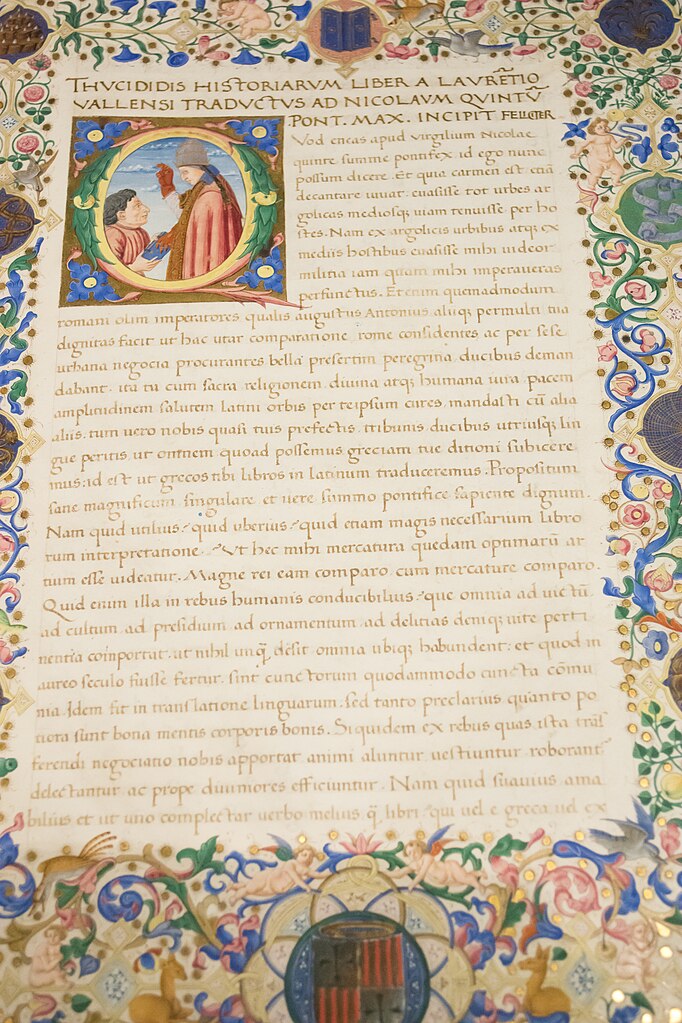 THVCIDIDIS HISTORIARVM LIBER A LAVRE̅TIO
VALLENSI TRADVCTVS AD NICOLAVM QVINTV̅
PONT. MAX. INCIPIT FELICITER
Vod eneas apud virgilium Nicolae
quinte summe pontifex id ego nunc
possum dicere. Et quia carmen est etia
decantare iuuat euasisse tot urbes ar
golicas mediosq; uiam tenuisse per ho
stes. Nam ex argolicis urbibus atq; ex
mediis hostibus euasisse mihi uideor
militia iam quam mihi imperaueras
perfunctus. Etenim quemadmodum
romani olim imperatores qualis augustus Antonius aliiq; permulti tua
dignitas facit ut hac utar comparatione rome considentes ac per sese
urbana negocia procurantes bella presertim peregrina ducibus deman
dabant. ita tu cum sacra religionem diuina atq; humana iura pacem
amplitudinem salutem latini orbis per teipsum cures. mandasti cu̅ alia
aliis. tum uero nobis quasi tuis prefectis. tribunis. ducibus utriusq; lin
gue peritis. ut omnem quoad possemus greciam tue ditioni subicere
mus: id est ut grecos tibi libros in latinum traduceremus. Propositum
sane magnificum singulare et uere summo pontifice sapiente dignum.
Nam quid utilius? quid uberius? quid etiam magis necessarium libro
rum interpretatione? Vt hec mihi mercatura quedam optimaru̅ ar
tium esse uideatur. Magne rei eam comparo cum mercature comparo.
Quid enim illa in rebus humanis conducibilius? que omnia ad uictu̅.
ad cultum. ad presidium. ad ornamentum. ad delitias deniq; uite perti
nentia comportat. ut nihil unq̅ desit omnia ubiq; habundent: et quod in
aureo seculo fuisse fertur. sint cunctorum quodammodo cuncta co̅mu
nia. Idem fit in translatione linguarum. sed tanto preclarius quanto po
tiora sunt bona mentis corporis bonis. Siquidem ex rebus quas ista tra̅s
ferendi negociatio nobis apportat animi aluntur. uestiuntur roborant
delectantur ac prope diuini ores efficiuntur. Nam quid suauius ama
bilius et ut uno complectar uerbo melius q̅ libri qui uel e greca uel ex